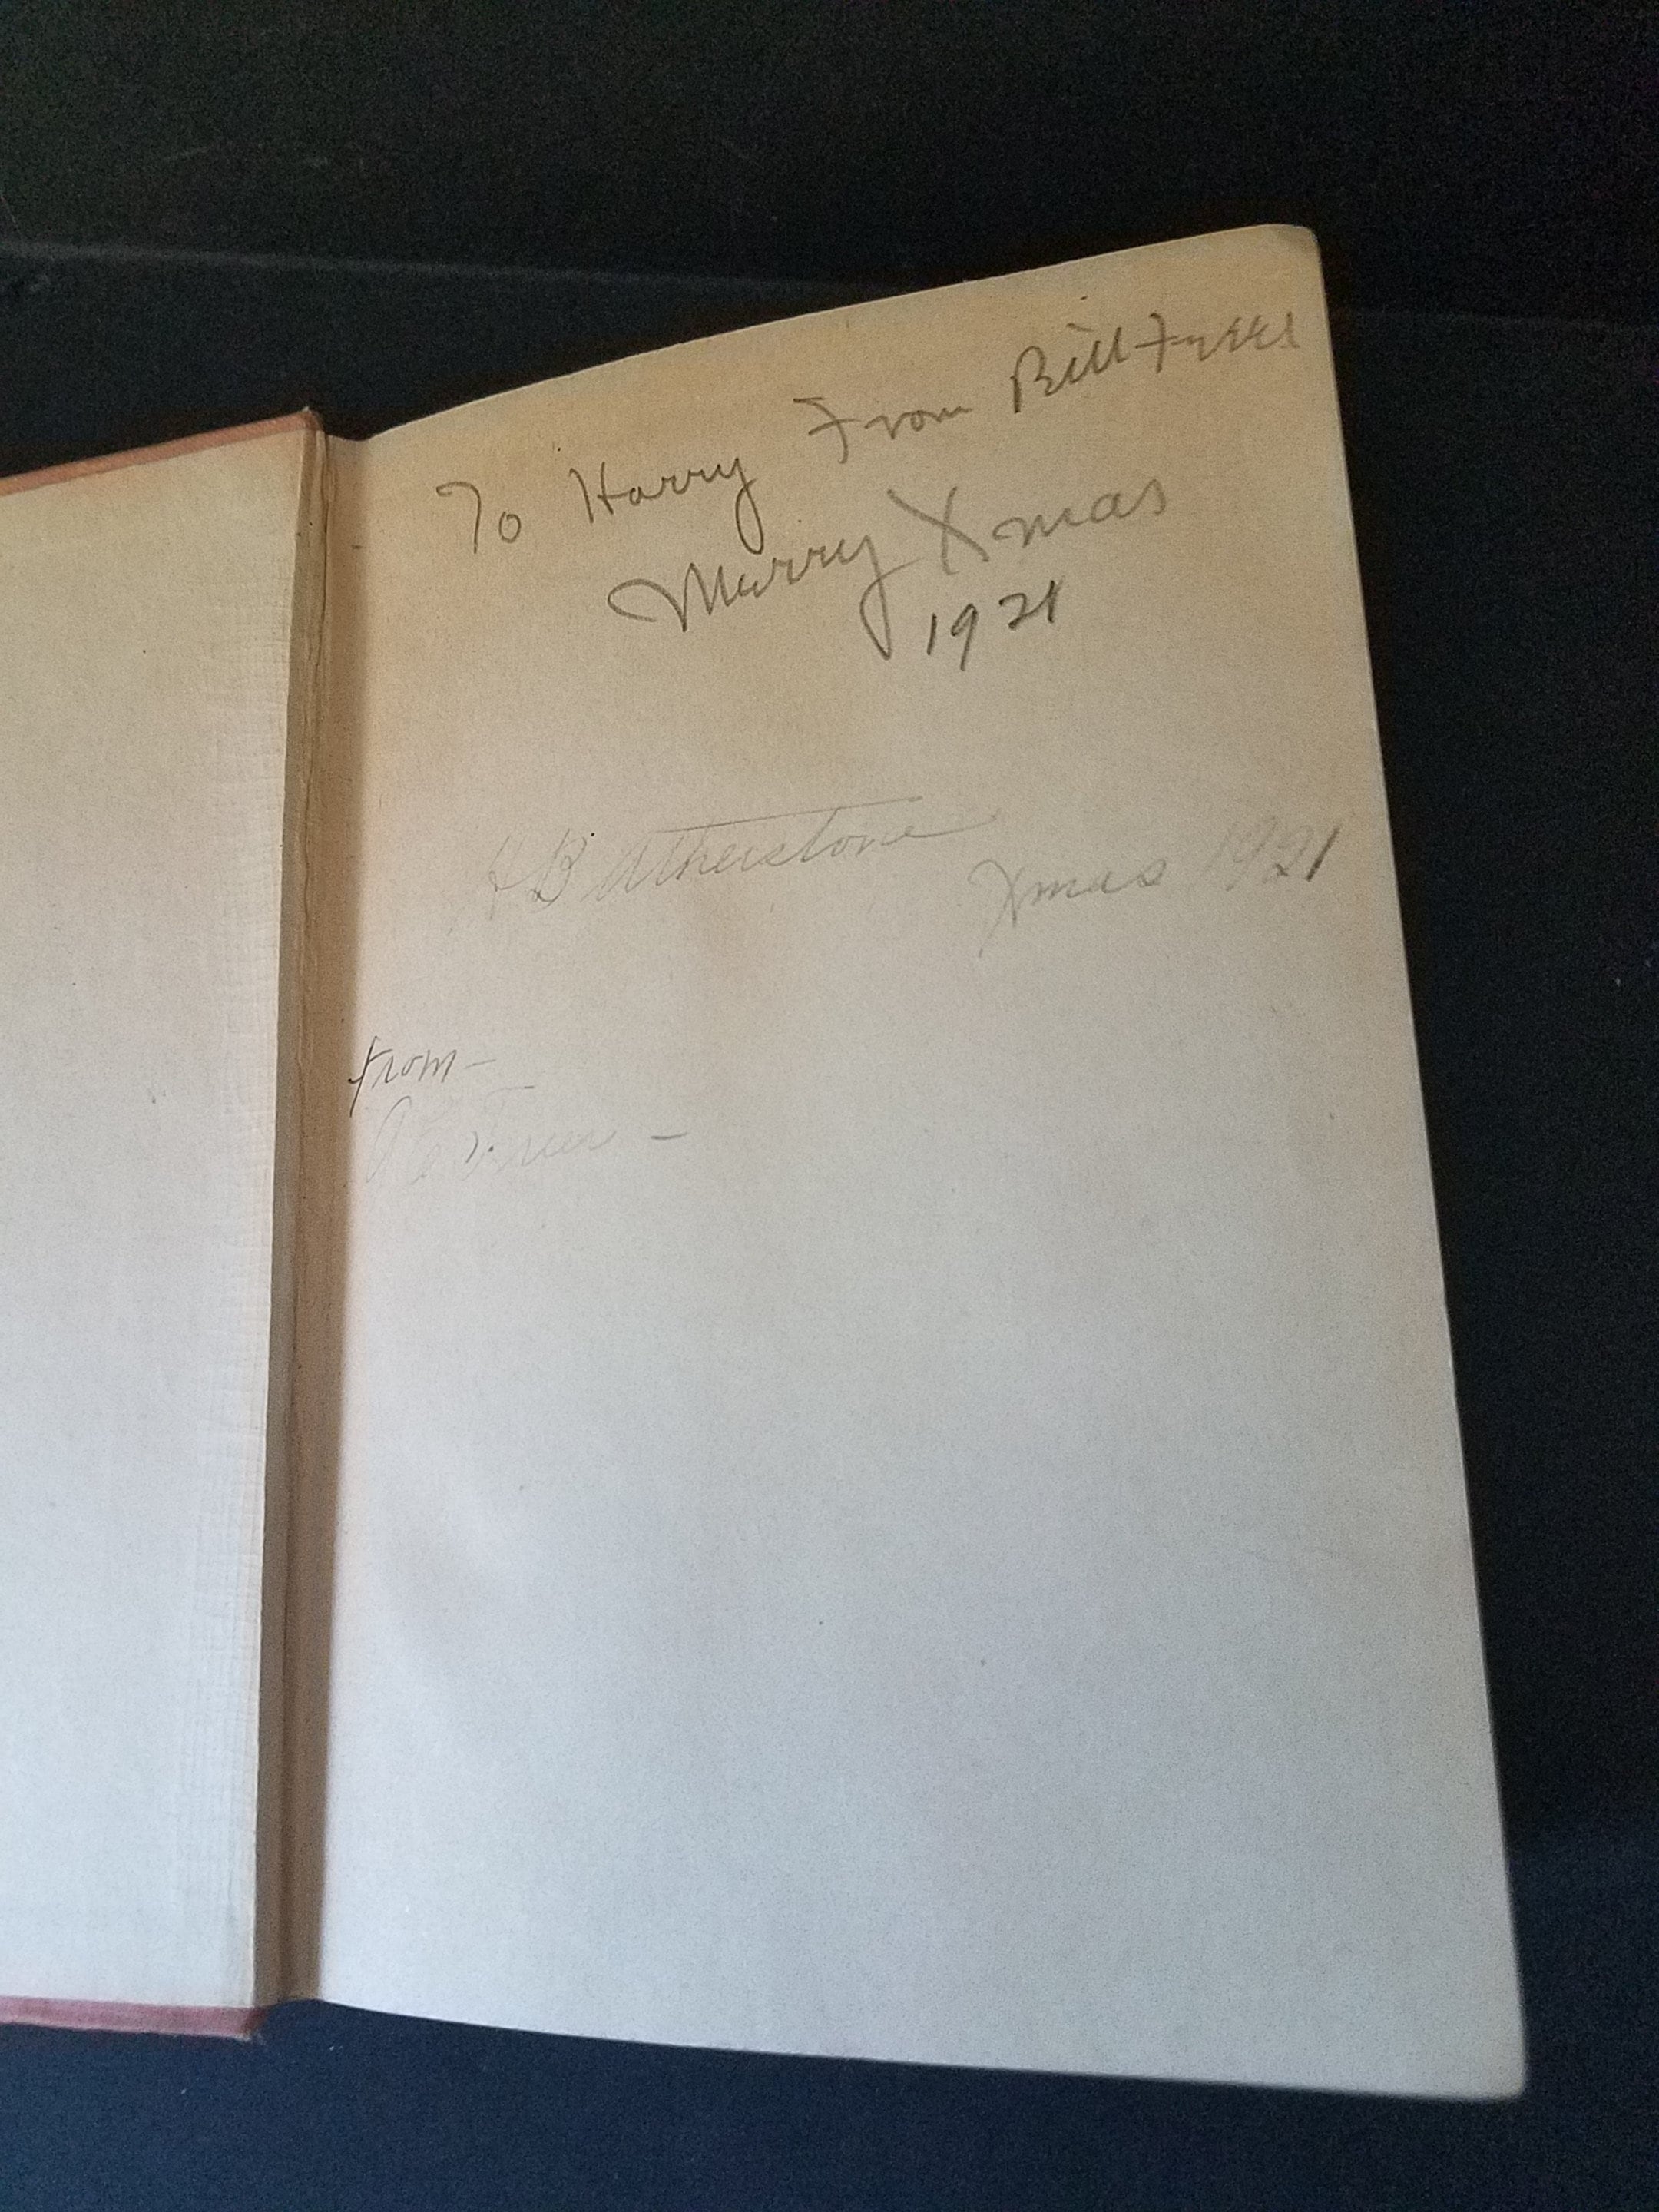 To Harry From Bill
Merry Xmas
1921
H B Atherstone
Xmas 1921
from -